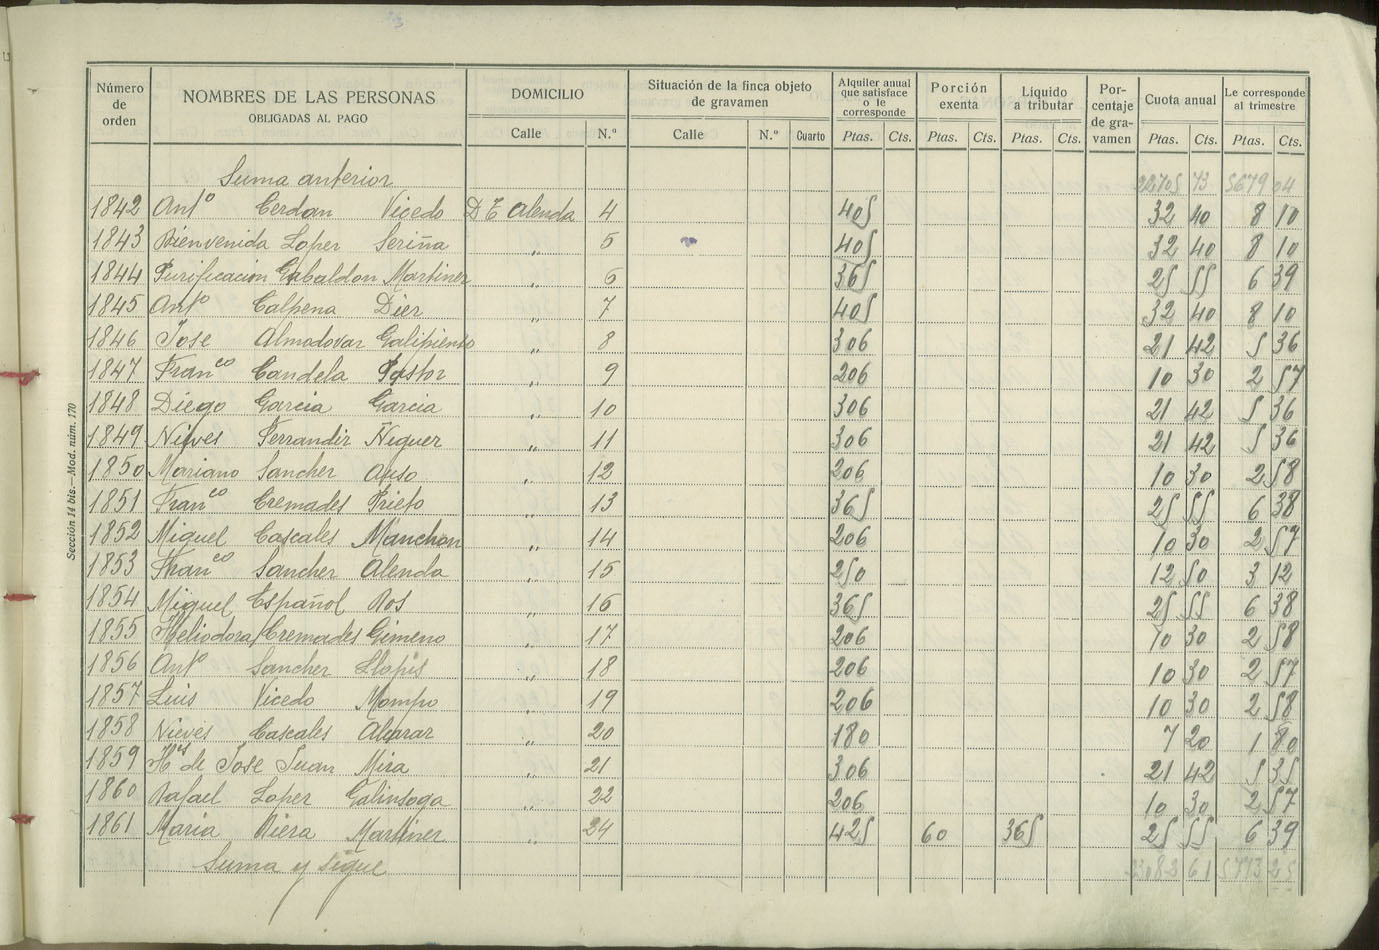 Número de orden | NOMBRES DE LAS PERSONAS OBLIGADAS AL PAGO | DOMICILIO | Situación de la finca objeto de gravamen | Alquiler anual que satisface o le corresponde | Porción exenta | Líquido a tributar | Porcentaje de gravamen | Cuota anual | Le corresponde al trimestre
Calle | N.º | Calle | N.º | Cuarto | Ptas. | Cts. | Ptas. | Cts. | Ptas. | Cts. | Ptas. | Cts. | Ptas. | Cts.
Suma anterior 22705 73 5679 04
1842 Antº Cerdan Vicedo D E Alenda 4 405 32 40 8 10
1843 Bienvenida Loper Seriña „ 5 405 32 40 8 10
1844 Purificacion Gabaldon Martiner „ 6 365 25 55 6 39
1845 Antº Calpena Dier „ 7 405 32 40 8 10
1846 Jose Almodovar Galipienso „ 8 306 21 42 5 36
1847 Franco Candela Pastor „ 9 206 10 30 2 57
1848 Diego Garcia Garcia „ 10 306 21 42 5 36
1849 Nieves Ferrandir Ñiguer „ 11 306 21 42 5 36
1850 Mariano Sancher Auso „ 12 206 10 30 2 58
1851 Franco Cremades Prieto „ 13 365 25 55 6 38
1852 Miguel Cascales Manchon „ 14 206 10 30 2 57
1853 Franco Sancher Alenda „ 15 250 12 50 3 12
1854 Miguel Español Ros „ 16 365 25 55 6 38
1855 Heliodora Cremades Gimeno „ 17 206 10 30 2 58
1856 Antº Sancher Llopis „ 18 206 10 30 2 57
1857 Luis Vicedo Mompo „ 19 206 10 30 2 58
1858 Nieves Cascales Alvarar „ 20 180 7 20 1 80
1859 Hs de Jose Juan Mira „ 21 306 21 42 5 35
1860 Rafael Loper Galinsoga „ 22 206 10 30 2 57
1861 Maria Riera Martiner „ 24 425 60 365 25 55 6 39
Suma y sigue 23082 61 5773 25
Sección 14 bis.—Mod. núm. 170